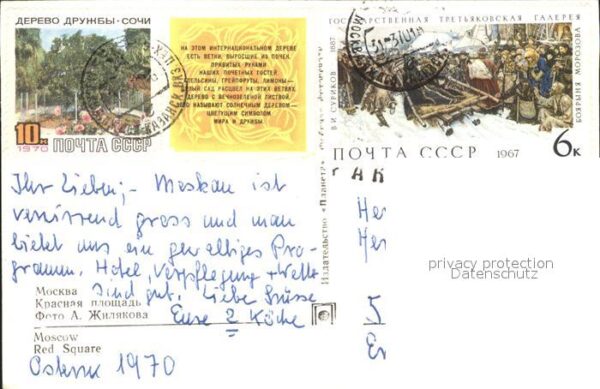 ДЕРЕВО ДРУЖБЫ·СОЧИ
НА ЭТОМ ИНТЕРНАЦИОНАЛЬНОМ ДЕРЕВЕ
ЕСТЬ ВЕТКИ, ВЫРОСШИЕ ИЗ ПОЧЕК,
ПРИВИТЫХ РУКАМИ
НАШИХ ПОЧЕТНЫХ ГОСТЕЙ
АПЕЛЬСИНЫ, ГРЕЙПФРУТЫ, ЛИМОНЫ—
ЦЕЛЫЙ САД РАСЦВЕЛ НА ЭТИХ ВЕТВЯХ.
ДЕРЕВО С ВЕЧНОЗЕЛЕНОЙ ЛИСТВОЙ,
ЕГО НАЗЫВАЮТ СОЛНЕЧНЫМ ДЕРЕВОМ—
ЦВЕТУЩИМ СИМВОЛОМ
МИРА И ДРУЖБЫ.
10к
1970 ПОЧТА СССР
ГОСУДАРСТВЕННАЯ ТРЕТЬЯКОВСКАЯ ГАЛЕРЕЯ
В.И.СУРИКОВ 1887
БОЯРЫНЯ МОРОЗОВА
ПОЧТА СССР 1967 6к
Ihr Lieben;- Moskau ist
verwirrend gross und man
bietet uns ein gewaltiges Pro-
gramm. Hotel, Verpflegung + Wetter
sind gut. Liebe Grüsse
Eure 2 Köche
Москва
Красная площадь
Фото А. Жилякова
Moscow
Red Square
Ostern 1970
Издательство «Планета»
АR
He
He
5
privacy protection
Datenschutz